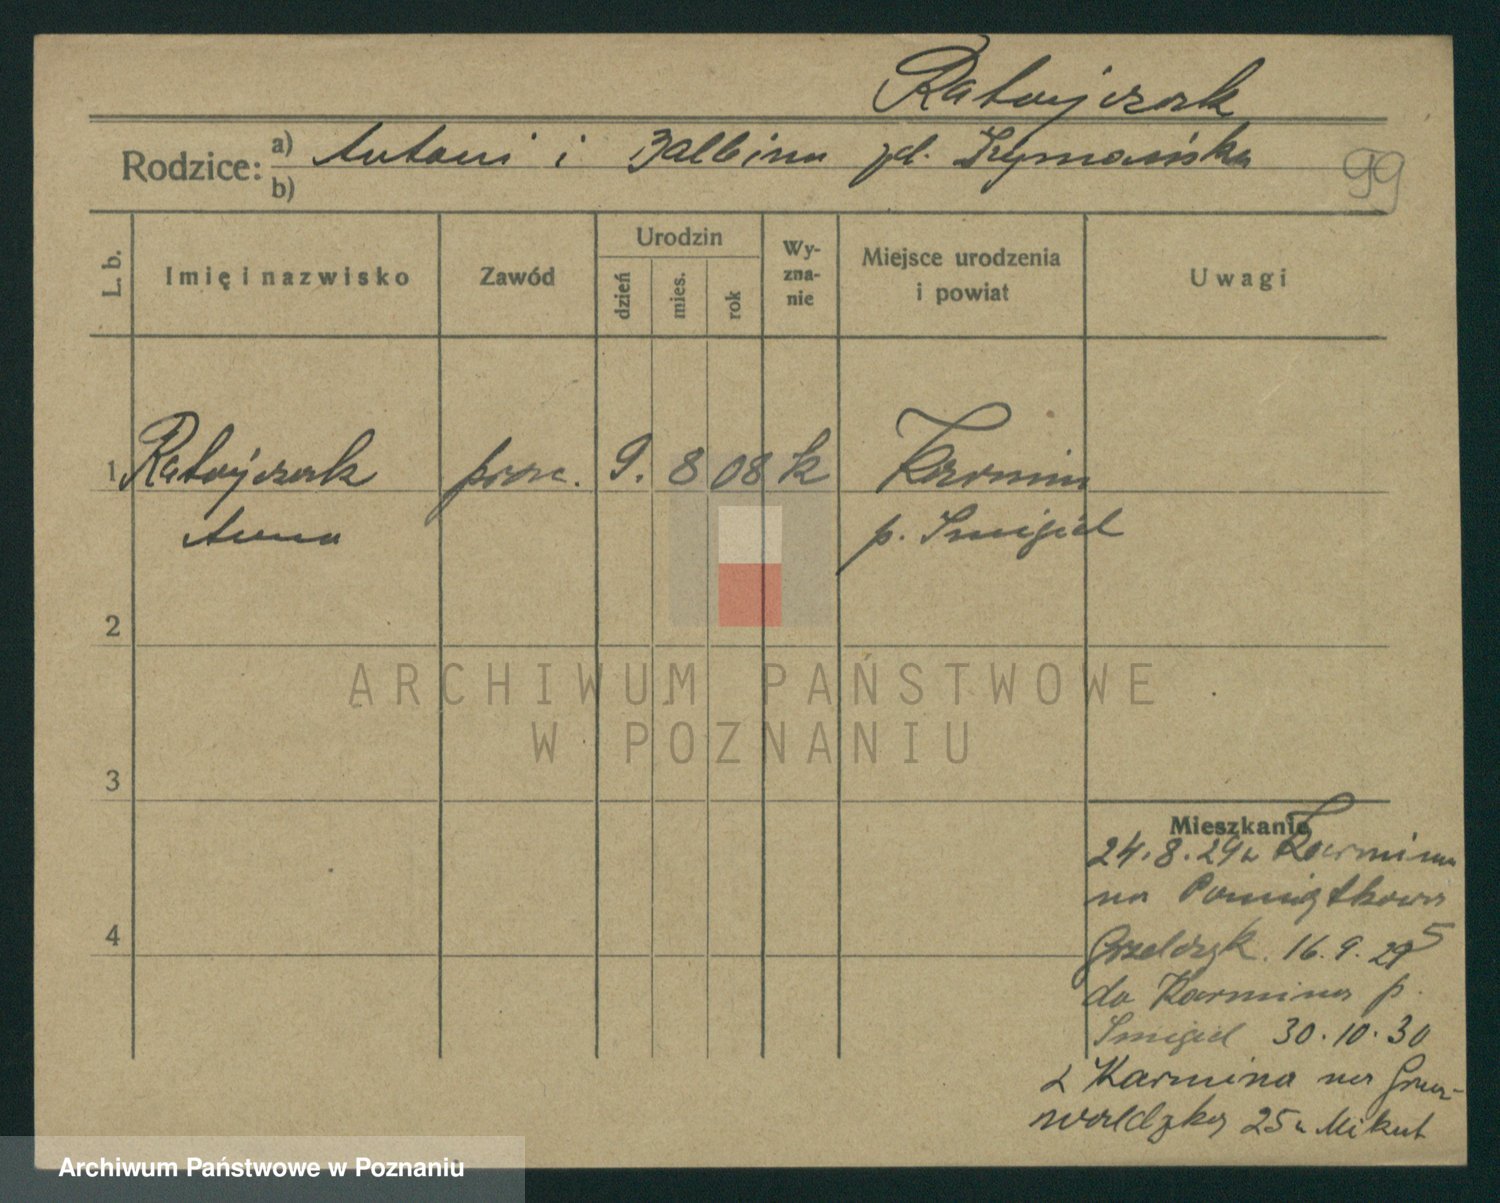 Ratajczak
Rodzice: a) Antoni i Balbina zd. Szymańska
b)
99
L. b.
Imię i nazwisko
Zawód
Urodzin
dzień
mies.
rok
Wy-
zna-
nie
Miejsce urodzenia
i powiat
Uwagi
1 Ratajczak prac. 9. 8 08 k Karmin
Anna p. Śmigiel
2
3
4
ARCHIWUM PAŃSTWOWE
W POZNANIU
Mieszkanie
24.8.29 z Karmina
na Pamiątkowa
Grzelczyk. 16.9.29
do Karmina p.
Śmigiel 30.10.30
z Karmina na Grun-
waldzką 25 u Mikut
Archiwum Państwowe w Poznaniu